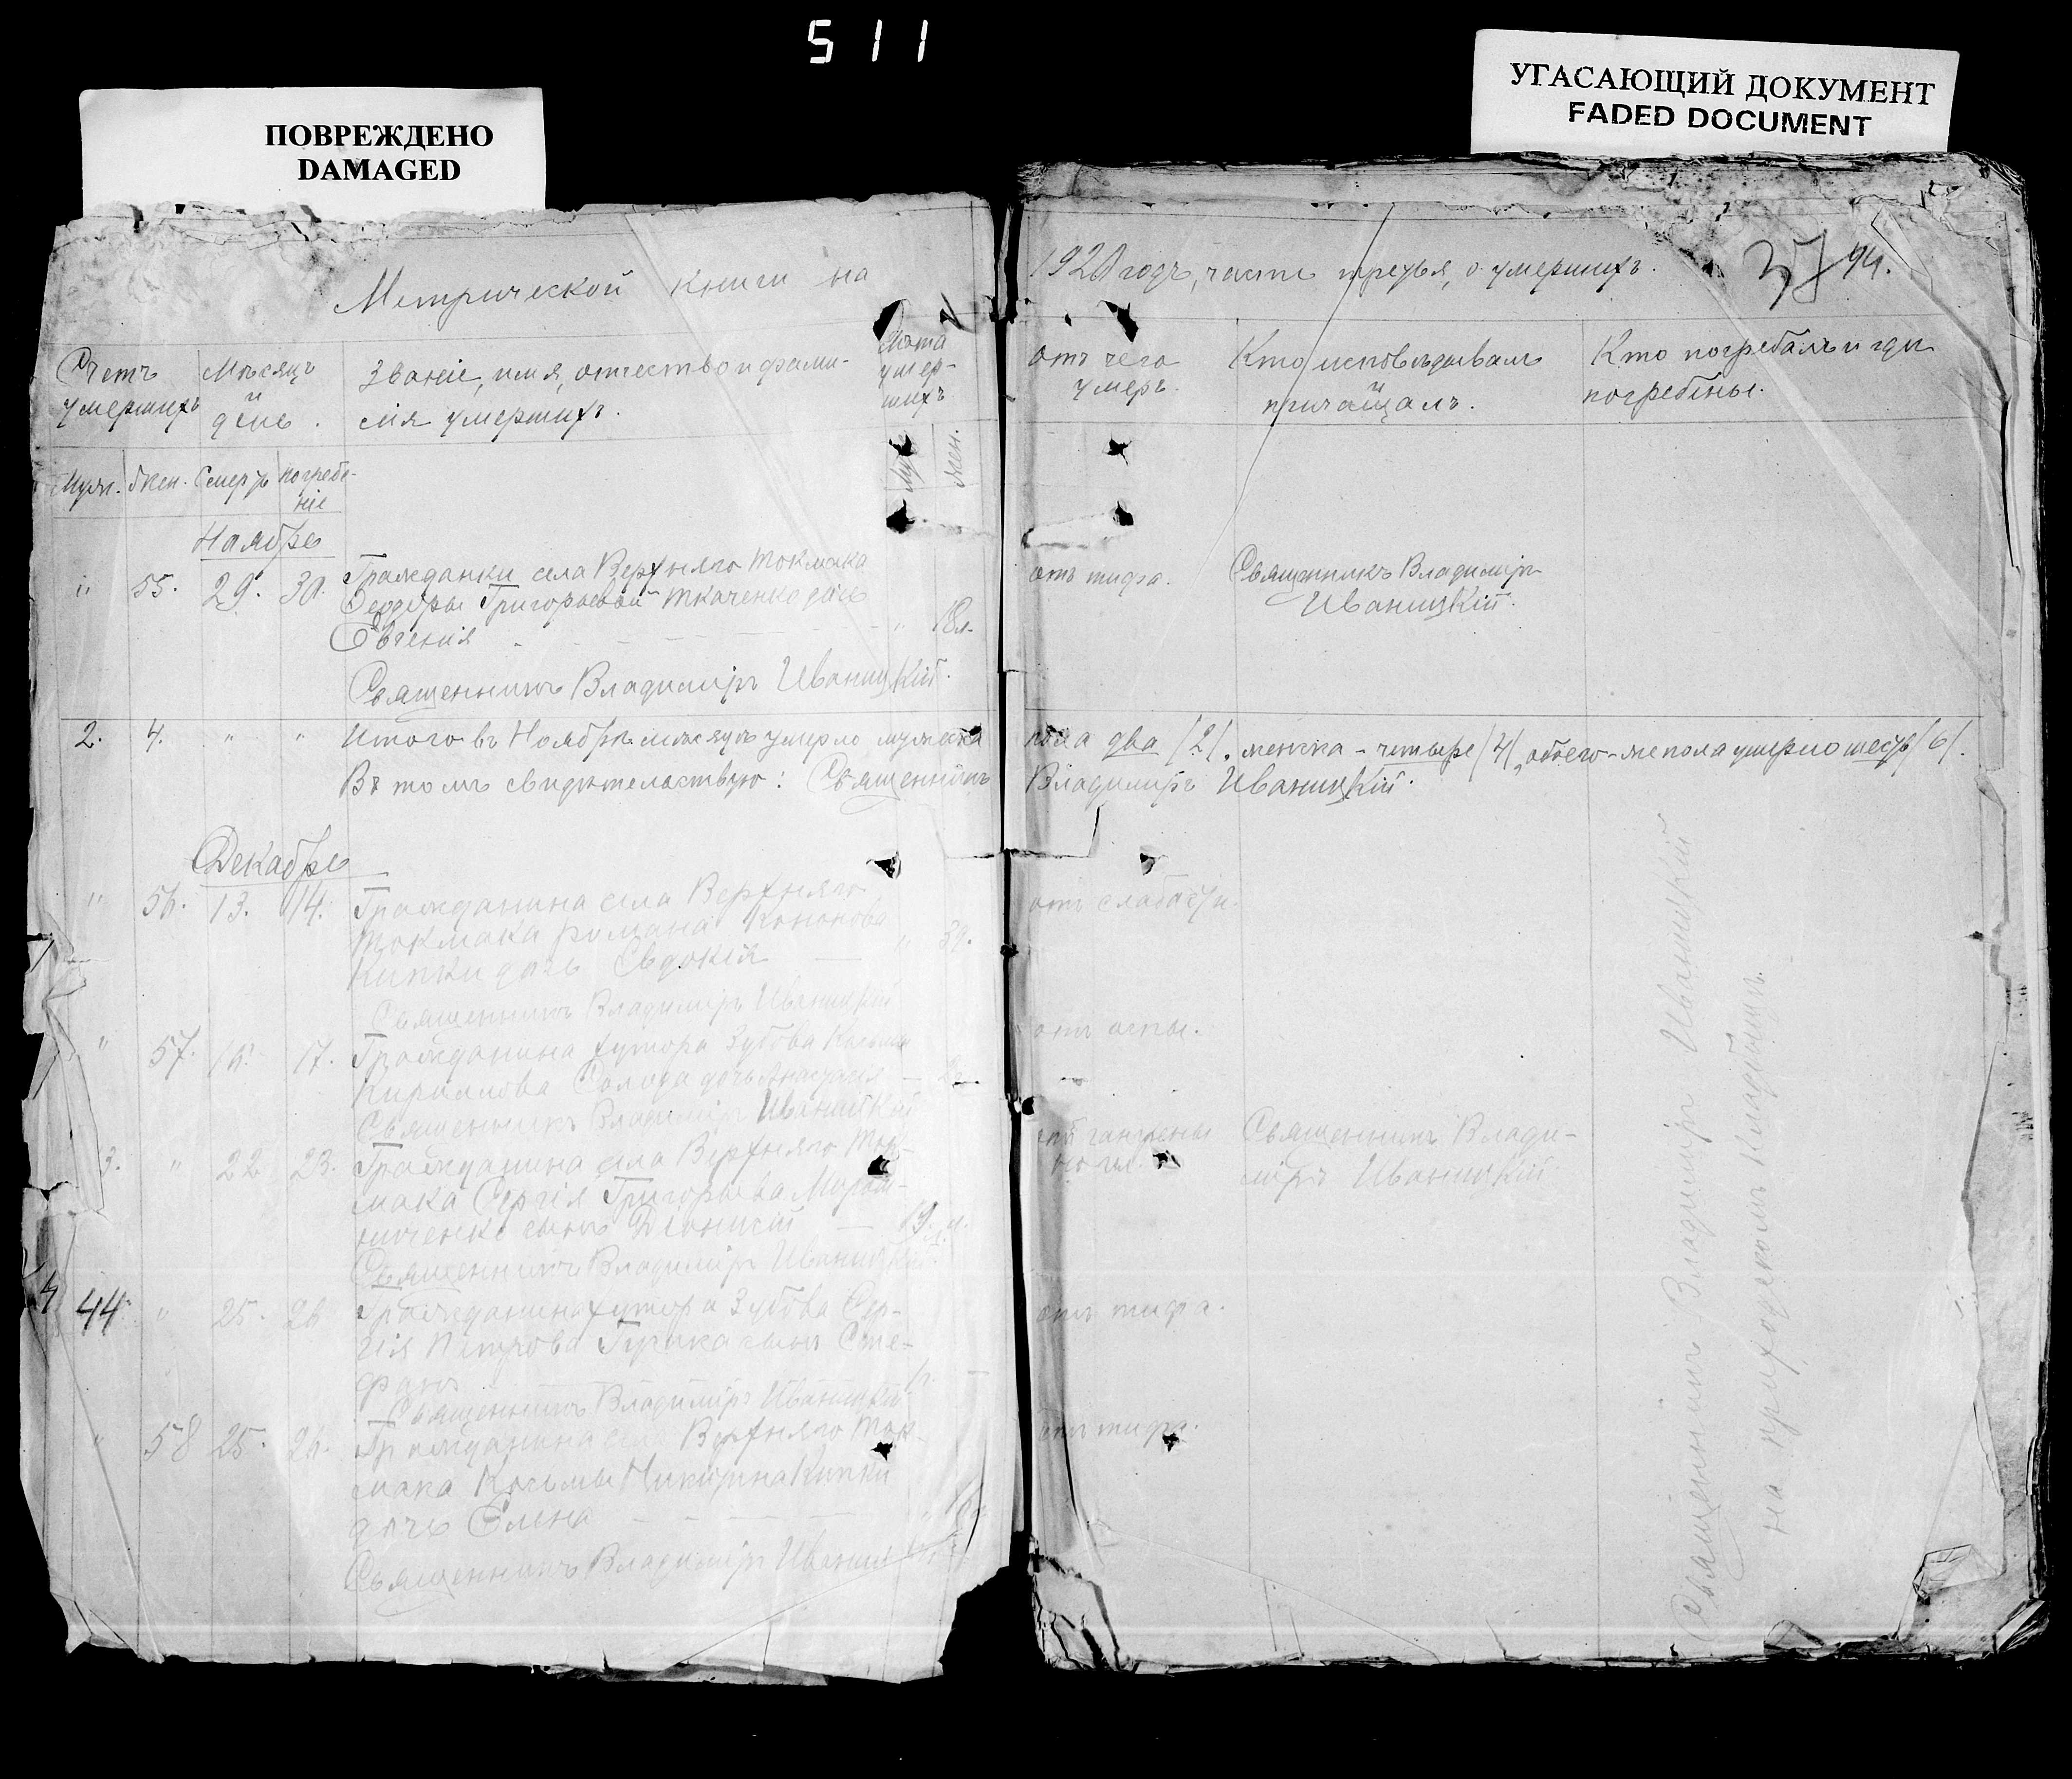 511
ПОВРЕЖДЕНО
DAMAGED
УГАСАЮЩИЙ ДОКУМЕНТ
FADED DOCUMENT
Метрической книги на
Счетъ
умершихъ
Мѣсяцъ
и
день.
Званіе, имя, отчество и фами-
лія умершихъ.
Лѣта
умер-
шихъ
Муж. Жен. Смерть Погребе-
ніе
Муж. Жен.
Ноябрь
" 55. 29. 30. Гражданки села Верхняго Токмака
Феодоры Григорьевой Ткаченко дочь
Евгенія - - - " 18 л.
Священникъ Владиміръ Иваницкій.
2. 4. " " Итого въ Ноябрѣ мѣсяцѣ умерло мужеска
Въ томъ свидѣтельствую: Священникъ
Декабрь
" 56. 13. 14. Гражданина села Верхняго
Токмака Романа Кононова
Кипки дочь Евдокія — "
Священникъ Владиміръ Иваницкій
" 57. 16. 17. Гражданина хутора Зубова
Кириллова дочь Анастасія —
Священникъ Владиміръ Иваницкій
3. " 22 23. Гражданина села Верхняго Ток-
мака Сергія Григорьева
сынъ Діонисій — 19.
Священникъ Владиміръ Иваницкій.
44 " 25. 26 Гражданина хутора Зубова Сер-
гія Петрова сынъ Сте-
фанъ
Священникъ Владиміръ Иваницкій
" 58 25. 26. Гражданина села Верхняго Ток-
мака Козьмы Кипки
дочь Елена - - -
Священникъ Владиміръ
1920 годъ, часть третья, о умершихъ.
37 94.
Отъ чего
умеръ.
Кто исповѣдывалъ
и
причащалъ.
Кто погребалъ и гдѣ
погребены.
отъ тифа. Священникъ Владиміръ
Иваницкій.
пола два /2/, женска - четыре /4/, обоего-же пола умерло шесть /6/.
Владиміръ Иваницкій.
отъ слабости.
отъ оспы.
отъ гангрены Священникъ Влади-
ноги. міръ Иваницкій
отъ тифа.
отъ тифа.
Священникъ Владиміръ Иваницкій
на приходскомъ кладбищѣ.